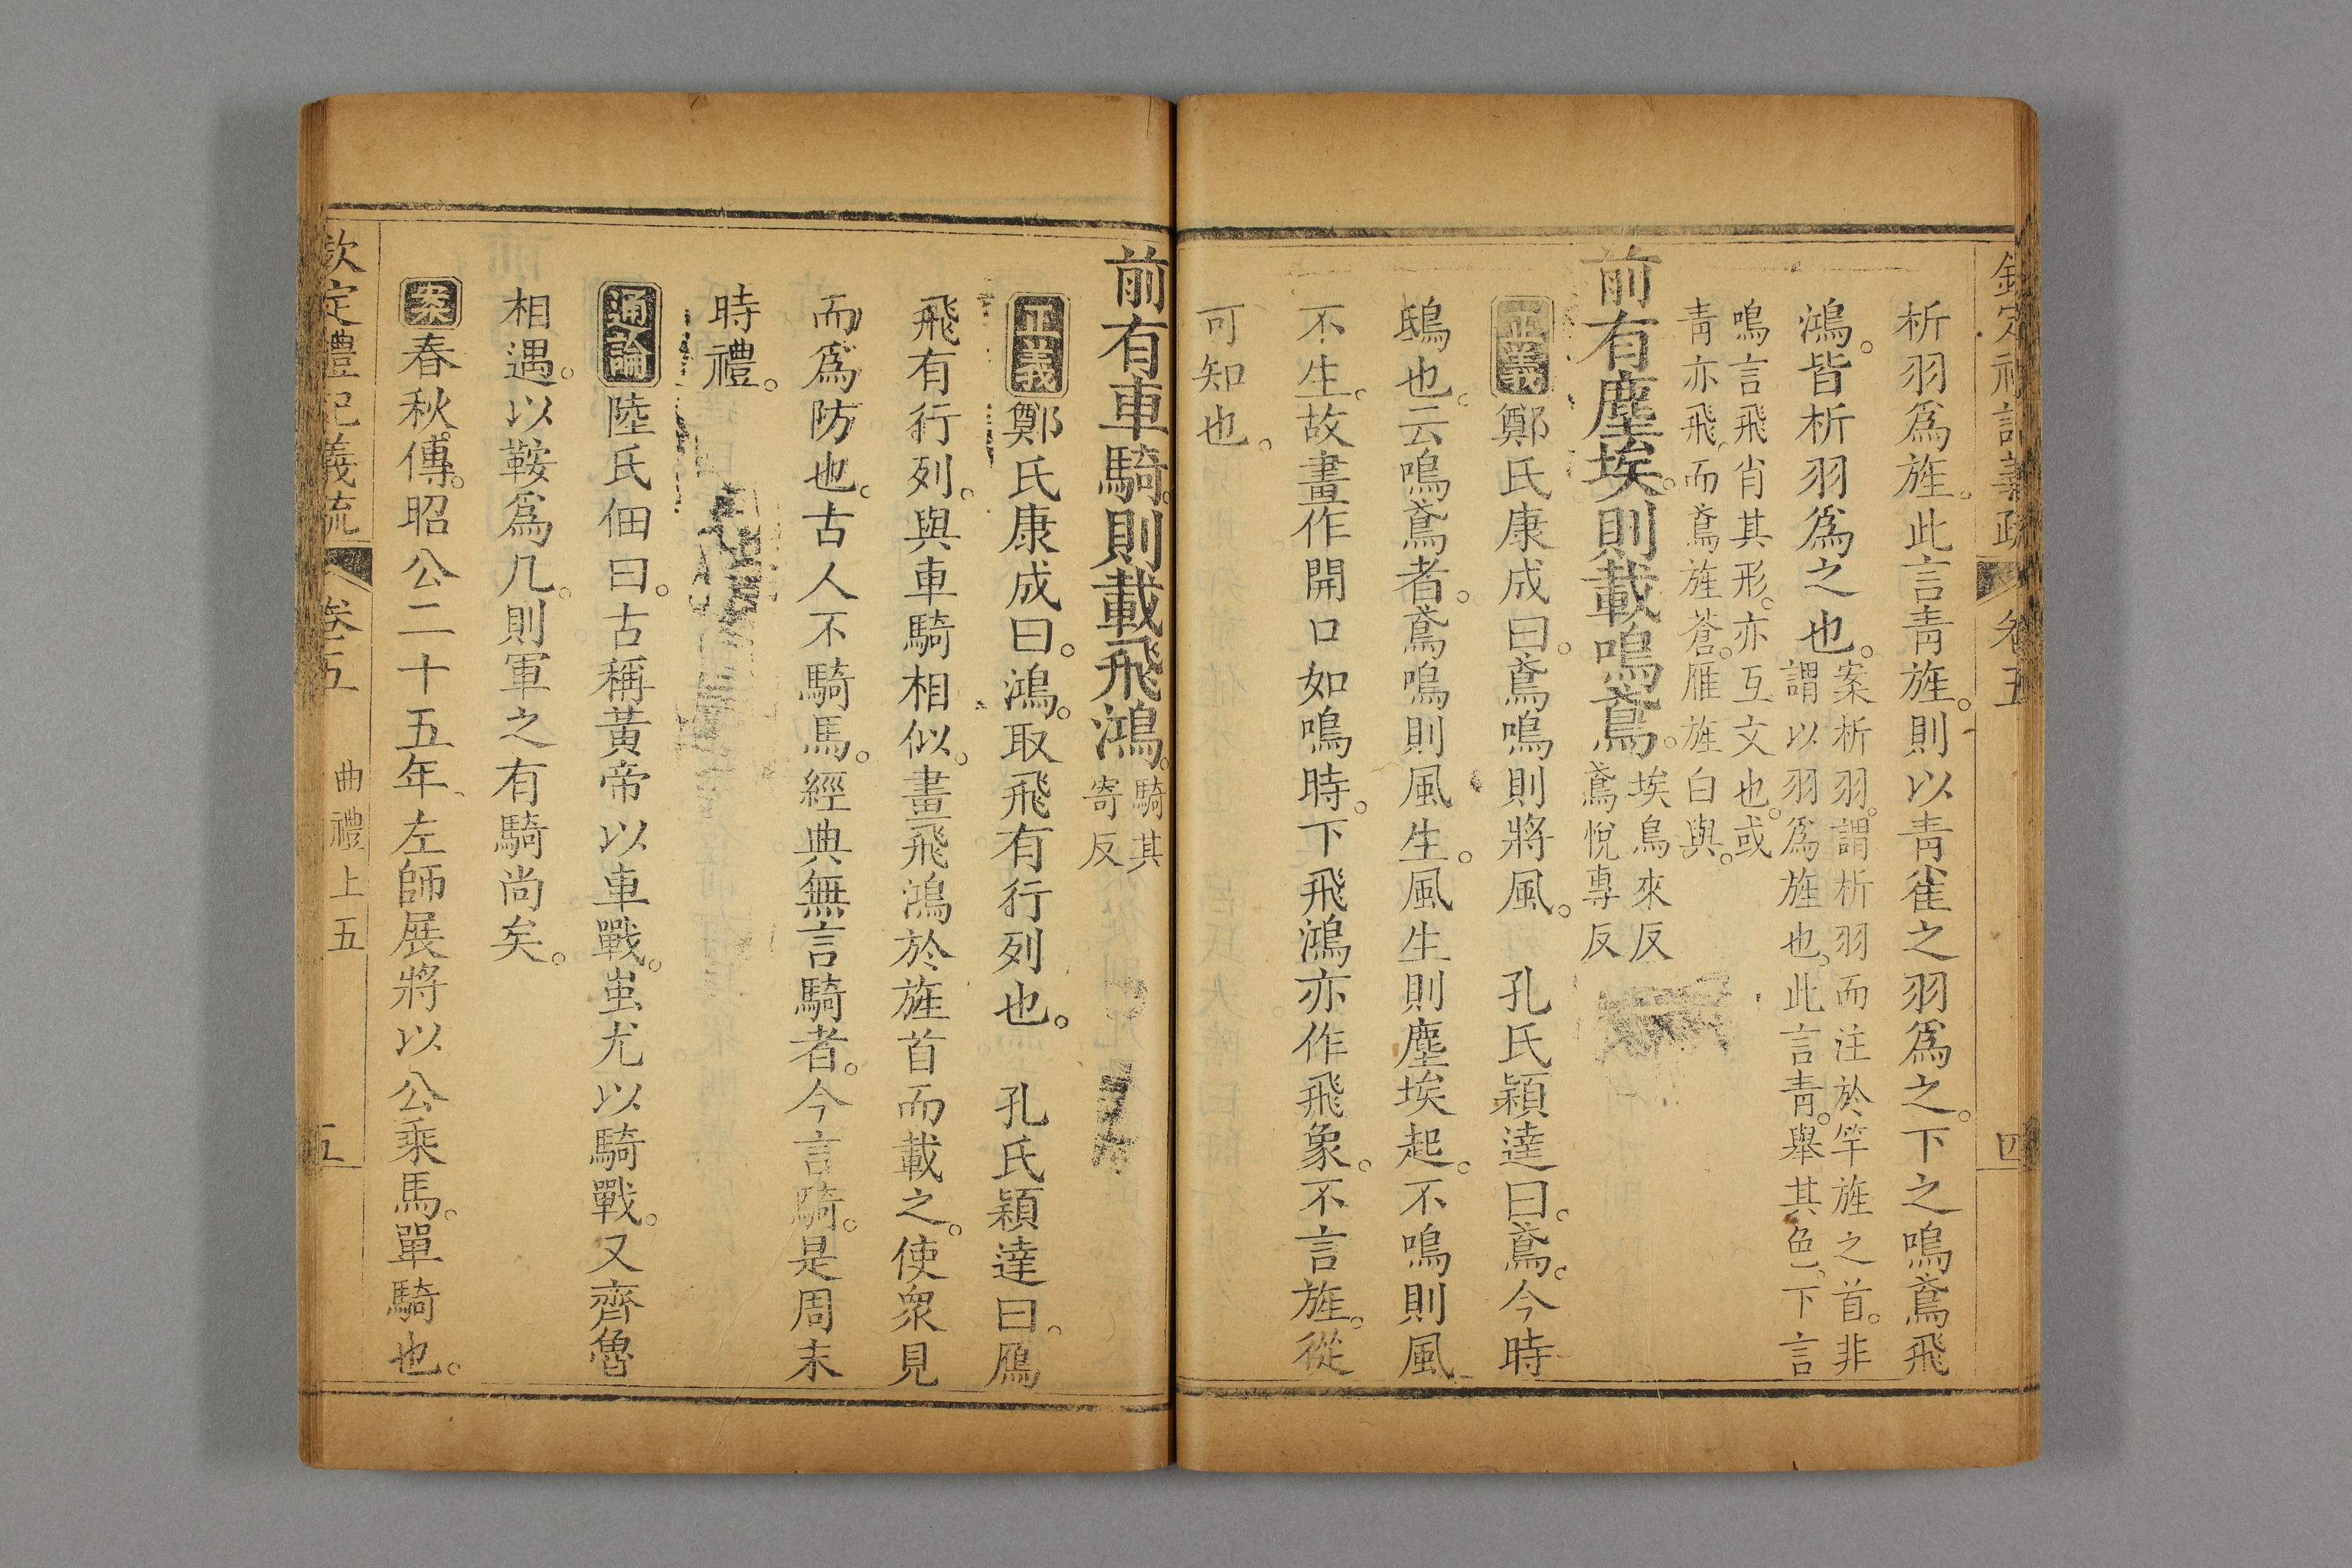 欽定禮記義疏 卷五 四
析羽爲旌。此言青旌。則以青雀之羽爲之。下之鳴鳶飛
鴻。皆析羽爲之也。案析羽。謂析羽而注於竿旌之首。非
謂以羽爲旌也。此言青。舉其色。下言
鳴言飛肖其形。亦互文也。或
青亦飛。而鳶旌蒼。雁旌白與。
前有塵埃。則載鳴鳶。埃烏來反
鳶悅專反
正義鄭氏康成曰。鳶鳴則將風。 孔氏穎達曰。鳶。今時
鴟也。云鳴鳶者。鳶鳴則風生。風生則塵埃起。不鳴則風
不生。故畫作開口如鳴時。下飛鴻亦作飛象。不言旌。從
可知也。
前有車騎。則載飛鴻。騎其
寄反
正義鄭氏康成曰。鴻。取飛有行列也。 孔氏穎達曰。鴈
飛有行列。與車騎相似。畫飛鴻於旌首而載之。使衆見
而爲防也。古人不騎馬。經典無言騎者。今言騎。是周末
時禮。
通論陸氏佃曰。古稱黃帝以車戰。蚩尤以騎戰。又齊魯
相遇。以鞍爲几。則軍之有騎尚矣。
案春秋傳。昭公二十五年。左師展將以公乘馬。單騎也。
欽定禮記義疏 卷五 曲禮上五 五